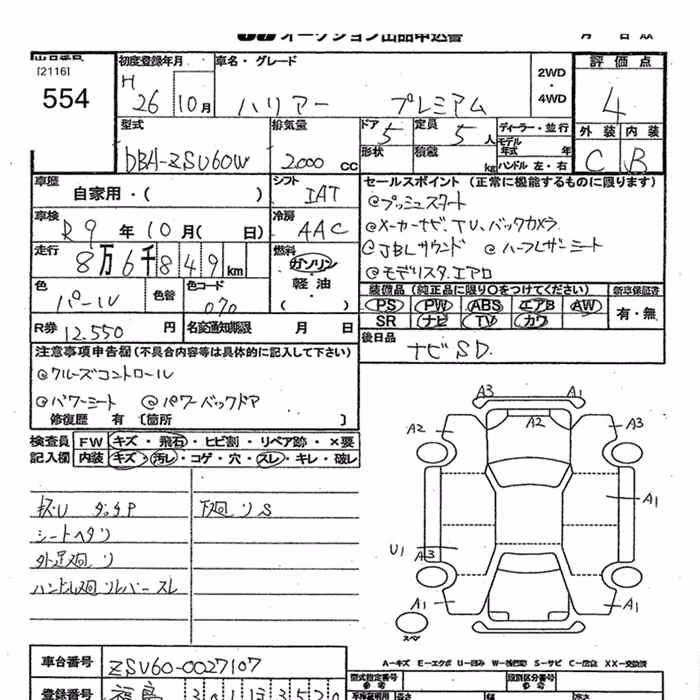 オークション出品申込書
[2116]
554
初度登録年月
H 26 10月
車名・グレード
ハリアー プレミアム
2WD
・
4WD
評価点
4
外装 内装
C B
型式
DBA-ZSU60W
排気量
2000 CC
ドア 5
形状
定員 5 人
積載 kg
ディーラー・並行
モデル年式 年
ハンドル 左・右
車歴
自家用・( )
シフト
IAT
車検
R9 年 10 月( 日)
冷房
AAC
走行
8万6千849km
燃料
ガソリン
軽油
( )
色
パール
色替
色コード
070
R券 12.550 円
名変通知期限 月 日
セールスポイント (正常に機能するものに限ります)
@プッシュスタート
@メーカーナビ、TV、バックカメラ
@JBLサウンド @ハーフレザーシート
@モデリスタエアロ
装備品(純正品に限り○をつけてください)
PS PW ABS エアB AW
SR ナビ TV カワ
新車保証書
有・無
後日品
ナビSD.
注意事項申告欄(不具合内容等は具体的に記入して下さい)
@クルーズコントロール
@パワーシート @パワーバックドア
修復歴 有 〔箇所 〕
検査員記入欄
FW キズ・飛石・ヒビ割・リペア跡・×要
内装 キズ・汚レ・コゲ・穴・スレ・キレ・破レ
シートヘタリ
A3 A1
A2 A2 A3
A1
U1 A3
A1 A1
スペア
A-キズ E-エクボ U-凹み W-補修跡 S-サビ C-腐食 XX-交換済
車台番号
ZSU60-0027107
登録番号
福島
型式指定番号
類別区分番号